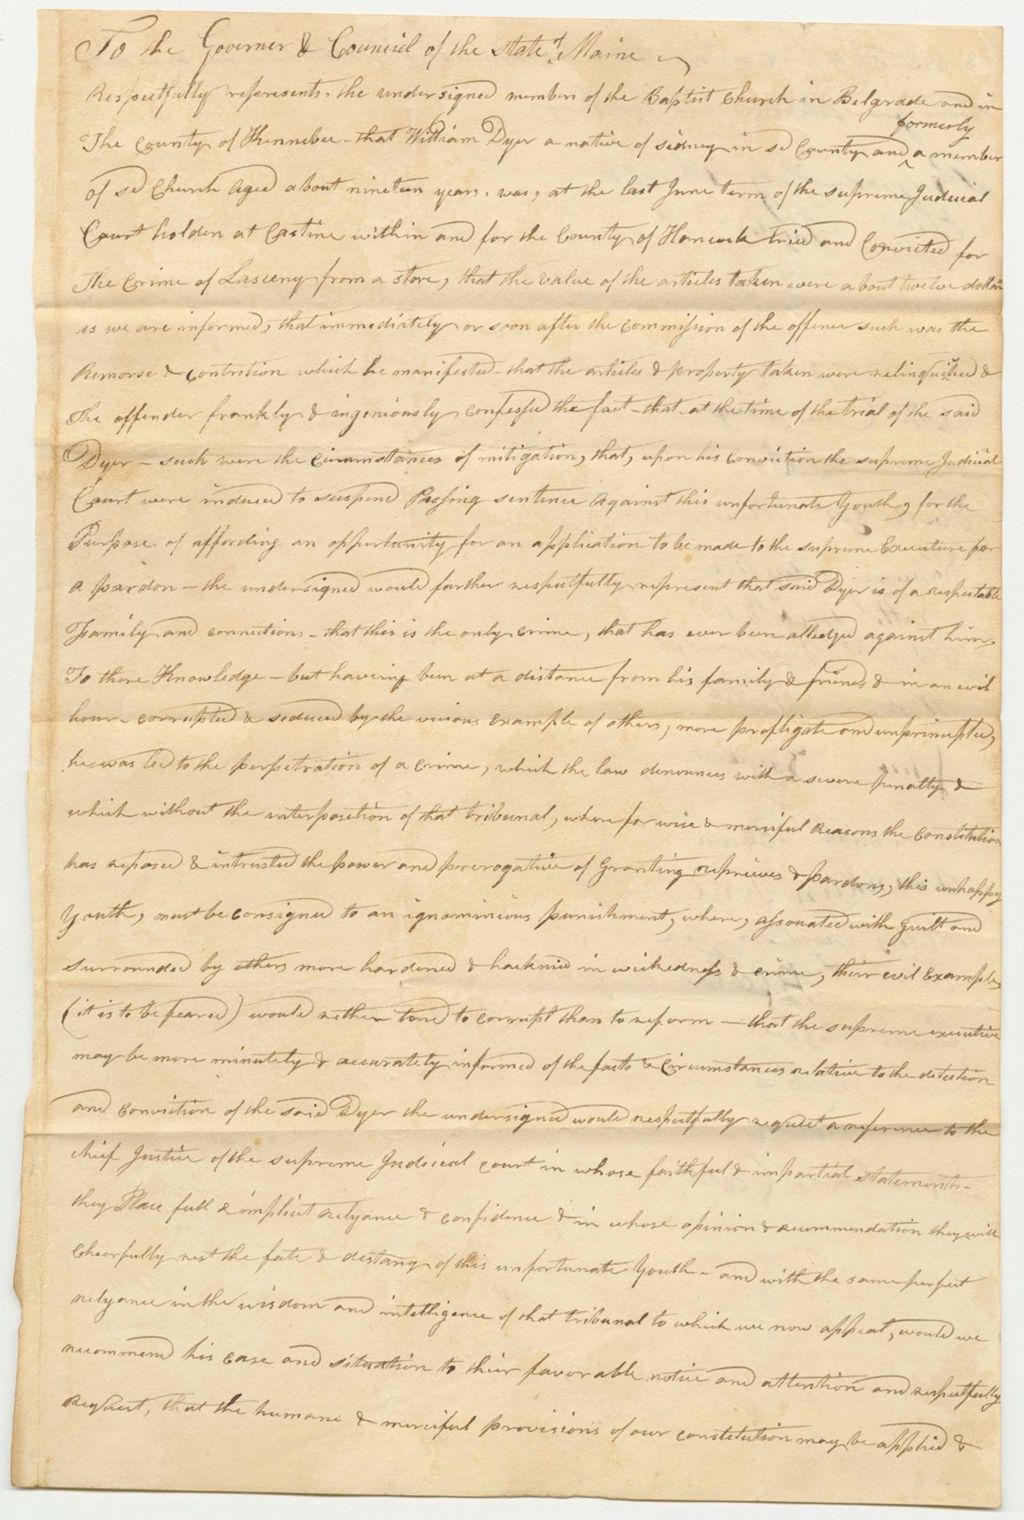 To the Governer & Council of the State of Maine
Respectfully represents. the undersigned members of the Baptist Church in Belgrade and in
The County of Kennebec - that William Dyer a native of Sidney in sd County and formerly a member
of sd Church Aged about nineteen years. was, at the last June term of the supreme Judicial
Court holden at Castine within and for the County of Hancock tried and Convicted for
The Crime of Larceny from a store, that the value of the articles taken were about twelve dollars
as we are informed, that immediately or soon after the commission of the offence such was the
Remorse & contrition which he manifested - that the articles & property taken were relinquished &
The offender frankly & ingeniously confessed the fact - that at the time of the trial of the said
Dyer - such were the Circumstances of mitigation, that, upon his conviction the supreme Judicial
Court were induced to suspend Passing sentence Against this unfortunate Youth, for the
Purpose of affording an oppertunity for an application to be made to the supreme Executive for
a pardon - the undersigned would farther respectfully represent that said Dyer is of a respectable
Family and connections - that this is the only crime, that has ever been alledged against him.
To there Knowledge - but having been at a distance from his family & friends & in an evil
hour - corrupted & seduced by the vicious example of others, more profligate and unprincipled,
he was led to the perpetration of a crime, which the law denounces with a severe penalty &
which without the interposition of that tribunal, where for wise & merciful Reasons the Constitution
has reposed & intrusted the power and prerogative of Granting reprieves & pardons, this unhappy
Youth, must be consigned to an ignominious punishment, where, associated with guilt and
surrounded by others more hardened & hacknied in wickedness & crime, their evil Example,
(it is to be feared) would rether tend to corrupt than to reform - that the supreme executive
may be more minutely & accurately informed of the facts & Circumstances relative to the detection
and conviction of the said Dyer the undersigned would respectfully request a reference to the
chief Justice of the supreme Judicial court in whose faithful & impartial statements -
they Place full & implicit relyance & confidence & in whose opinion & recommendation they will
cheerfully rest the fate & destany of this unfortunate Youth - and with the same perfect
relyance in the wisdom and intelligence of that tribunal to which we now appeal, would we
recommend his case and situation to their favorable notice and attention and respectfully
Request, that the humane & merciful provisions of our constitution may be applied &